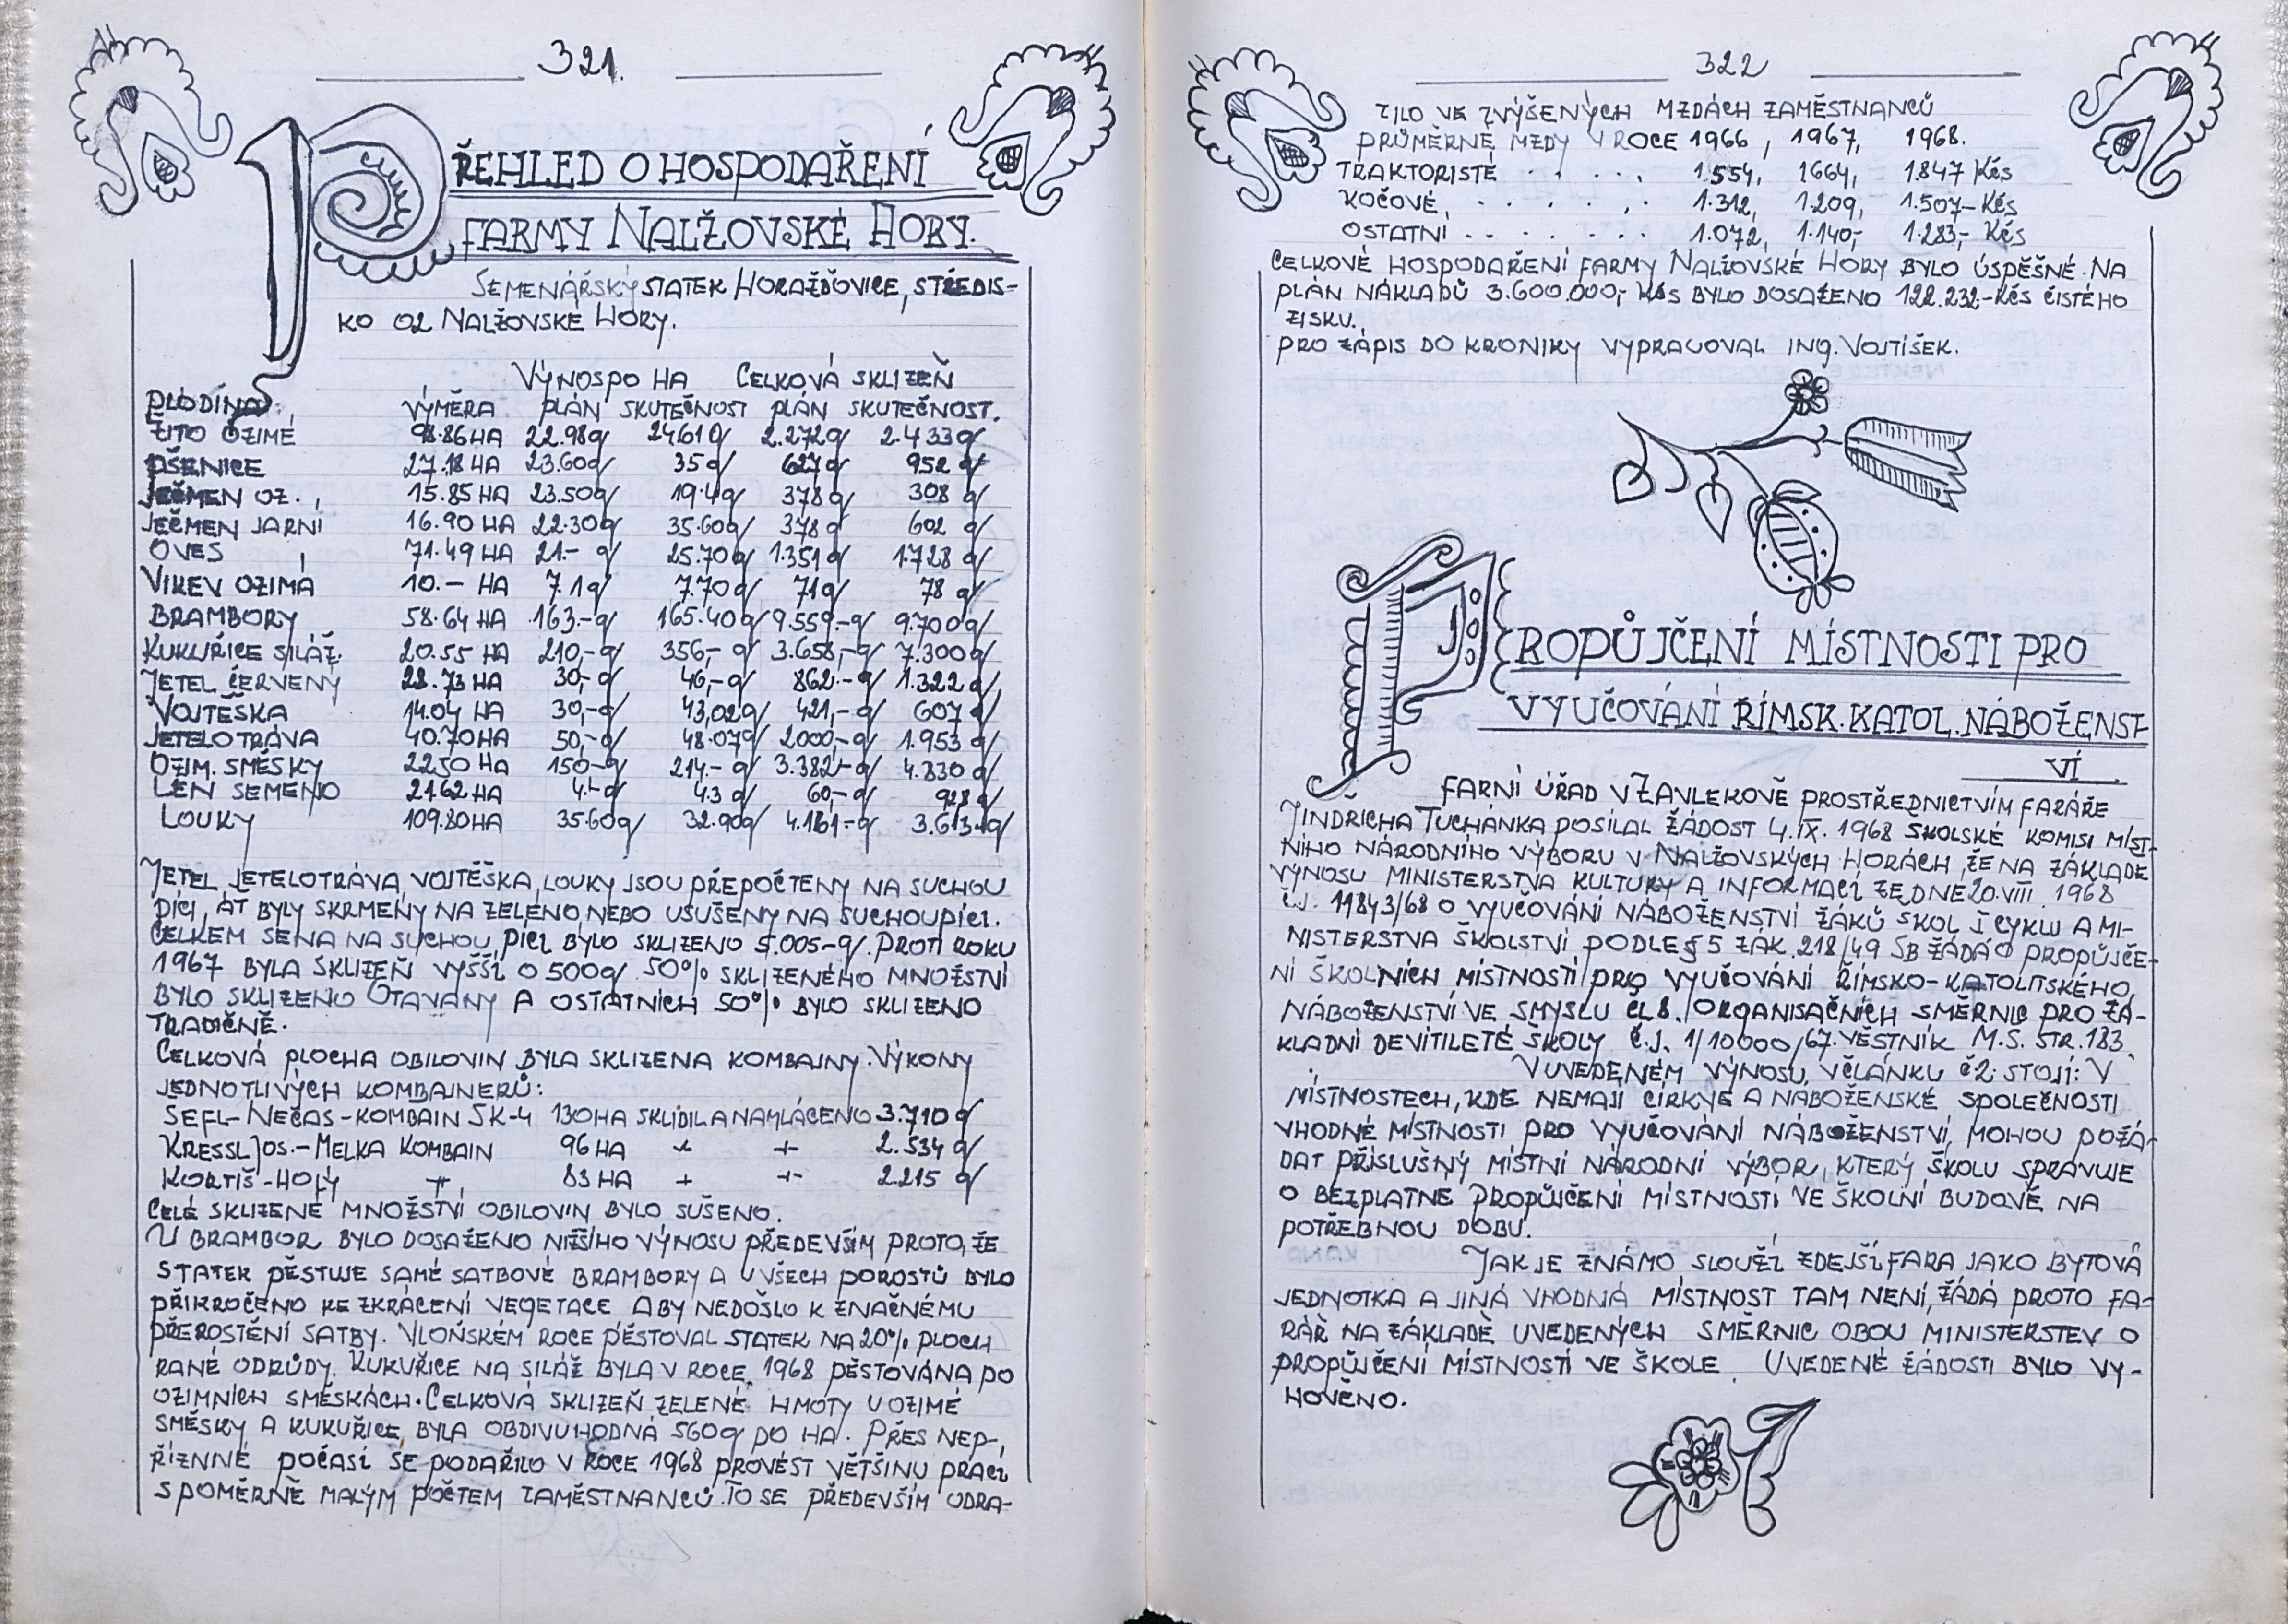 321.
PŘEHLED O HOSPODAŘENÍ
FARMY NALŽOVSKÉ HORY.
SEMENÁŘSKÝ STATEK HORAŽĎOVICE, STŘEDIS-
KO 02 NALŽOVSKÉ HORY.
VÝNOS PO HA CELKOVÁ SKLIZEŇ
PLODINA: VÝMĚRA PLÁN SKUTEČNOST PLÁN SKUTEČNOST.
ŽITO OZIMÉ 98.86 HA 22.98q 24.61q 2.272q 2.433q
PŠENICE 27.18 HA 23.60q 35q 627q 952 q
JEČMEN OZ. 15.85 HA 23.50q 19.4q 378q 308 q
JEČMEN JARNÍ 16.90 HA 22.30q 35.60q 378q 602 q
OVES 71.49 HA 21.- q 25.70q 1.351q 1.728 q
VIKEV OZIMÁ 10.- HA 7.1q 7.70q 71q 78 q
BRAMBORY 58.64 HA 163.-q 165.40q 9.559.-q 9.700q
KUKUŘICE SILÁŽ. 20.55 HA 210,-q 356,- q 3.658,-q 7.300q
JETEL ČERVENÝ 28.73 HA 30,-q 46,-q 862.-q 1.322 q
VOJTĚŠKA 14.04 HA 30,-q 43,02q 421,-q 607 q
JETELOTRÁVA 40.70 HA 50,-q 48.07q 2000,-q 1.953 q
OZIM. SMĚSKY 22.50 HA 150-q 214.- q 3.382,-q 4.830 q
LEN SEMENO 21.62 HA 4.-q 4.3 q 60,-q 928 q
LOUKY 109.80 HA 35.60q 32.90q 4.161.-q 3.613.-q
JETEL, JETELOTRÁVA, VOJTĚŠKA, LOUKY JSOU PŘEPOČTENY NA SUCHOU
PÍCI, AŤ BYLY SKRMENY NA ZELENO, NEBO USUŠENY NA SUCHOU PÍCI.
CELKEM SENA NA SUCHOU PÍCI BYLO SKLIZENO 5.005-q. PROTI ROKU
1967 BYLA SKLIZEŇ VYŠŠÍ O 500q. 50% SKLIZENÉHO MNOŽSTVÍ
BYLO SKLIZENO OTAVANY A OSTATNÍCH 50% BYLO SKLIZENO
TRADIČNĚ.
CELKOVÁ PLOCHA OBILOVIN BYLA SKLIZENA KOMBAJNY. VÝKONY
JEDNOTLIVÝCH KOMBAJNERŮ:
SEFL-NEČAS-KOMBAIN SK-4 130 HA SKLIDIL A NAMLÁCENO 3.710 q
KRESSL JOS.-MELKA KOMBAIN 96 HA -"- -"- 2.534 q
KORTIŠ-HOLÝ -"- 83 HA -"- -"- 2.215 q
CELÉ SKLIZENÉ MNOŽSTVÍ OBILOVIN BYLO SUŠENO.
U BRAMBOR BYLO DOSAŽENO NIŽŠÍHO VÝNOSU PŘEDEVŠÍM PROTO, ŽE
STATEK PĚSTUJE SAMÉ SATBOVÉ BRAMBORY A U VŠECH POROSTŮ BYLO
PŘIKROČENO KE ZKRÁCENÍ VEGETACE ABY NEDOŠLO K ZNAČNÉMU
PŘEROSTĚNÍ SATBY. V LOŇSKÉM ROCE PĚSTOVAL STATEK NA 20% PLOCH
RANÉ ODRŮDY. KUKUŘICE NA SILÁŽ BYLA V ROCE 1968 PĚSTOVÁNA PO
OZIMNÍCH SMĚSKÁCH. CELKOVÁ SKLIZEŇ ZELENÉ HMOTY U OZIMÉ
SMĚSKY A KUKUŘICE BYLA OBDIVUHODNÁ 560q PO HA. PŘES NEP-
ŘÍZNNÉ POČASÍ SE PODAŘILO V ROCE 1968 PROVÉST VĚTŠINU PRACÍ
S POMĚRNĚ MALÝM POČTEM ZAMĚSTNANCŮ. TO SE PŘEDEVŠÍM ODRA-
322
ZILO VE ZVÝŠENÝCH MZDÁCH ZAMĚSTNANCŮ
PRŮMĚRNÉ MZDY V ROCE 1966, 1967, 1968.
TRAKTORISTÉ . . . . . 1.554, 1664, 1847 Kčs
KOČOVÉ, . . . . . . 1.312, 1.209, 1.507- Kčs
OSTATNÍ . . . . . . 1.072, 1.140,- 1.283,- Kčs
CELKOVÉ HOSPODAŘENÍ FARMY NALŽOVSKÉ HORY BYLO ÚSPĚŠNÉ. NA
PLÁN NÁKLADŮ 3.600.000,- Kčs BYLO DOSAŽENO 122.232-Kčs ČISTÉHO
ZISKU.
PRO ZÁPIS DO KRONIKY VYPRACOVAL ING. VOJTÍŠEK.
PROPŮJČENÍ MÍSTNOSTI PRO
VYUČOVÁNÍ ŘÍMSK. KATOL. NÁBOŽENST
VÍ
FARNÍ ÚŘAD V ZAVLEKOVĚ PROSTŘEDNICTVÍM FARÁŘE
JINDŘICHA TUCHÁNKA POSÍLAL ŽÁDOST 4.IX. 1968 ŠKOLSKÉ KOMISI MÍST-
NÍHO NÁRODNÍHO VÝBORU V NALŽOVSKÝCH HORÁCH, ŽE NA ZÁKLADĚ
VÝNOSU MINISTERSTVA KULTURY A INFORMACÍ ZE DNE 20.VIII. 1968
Č.J. 11843/68 O VYUČOVÁNÍ NÁBOŽENSTVÍ ŽÁKŮ ŠKOL I CYKLU A MI-
NISTERSTVA ŠKOLSTVÍ PODLE § 5 ZÁK. 218/49 SB ŽÁDÁ O PROPŮJČE-
NÍ ŠKOLNÍCH MÍSTNOSTÍ PRO VYUČOVÁNÍ ŘÍMSKO-KATOLITSKÉHO
NÁBOŽENSTVÍ VE SMYSLU ČL 8. ORGANISAČNÍCH SMĚRNIC PRO ZÁ-
KLADNÍ DEVÍTILETÉ ŠKOLY Č.J. 1/10000/67. VĚSTNÍK M.S. STR. 183.
V UVEDENÉM VÝNOSU, V ČLÁNKU Č 2. STOJÍ: V
MÍSTNOSTECH, KDE NEMAJÍ CÍRKVE A NÁBOŽENSKÉ SPOLEČNOSTI
VHODNÉ MÍSTNOSTI PRO VYUČOVÁNÍ NÁBOŽENSTVÍ, MOHOU POŽÁ-
DAT PŘÍSLUŠNÝ MÍSTNÍ NÁRODNÍ VÝBOR, KTERÝ ŠKOLU SPRAVUJE
O BEZPLATNÉ PROPŮJČENÍ MÍSTNOSTI VE ŠKOLNÍ BUDOVĚ NA
POTŘEBNOU DOBU.
JAK JE ZNÁMO SLOUŽÍ ZDEJŠÍ FARA JAKO BYTOVÁ
JEDNOTKA A JINÁ VHODNÁ MÍSTNOST TAM NENÍ, ŽÁDÁ PROTO FA-
RÁŘ NA ZÁKLADĚ UVEDENÝCH SMĚRNIC OBOU MINISTERSTEV O
PROPŮJČENÍ MÍSTNOSTÍ VE ŠKOLE. UVEDENÉ ŽÁDOSTI BYLO VY-
HOVĚNO.